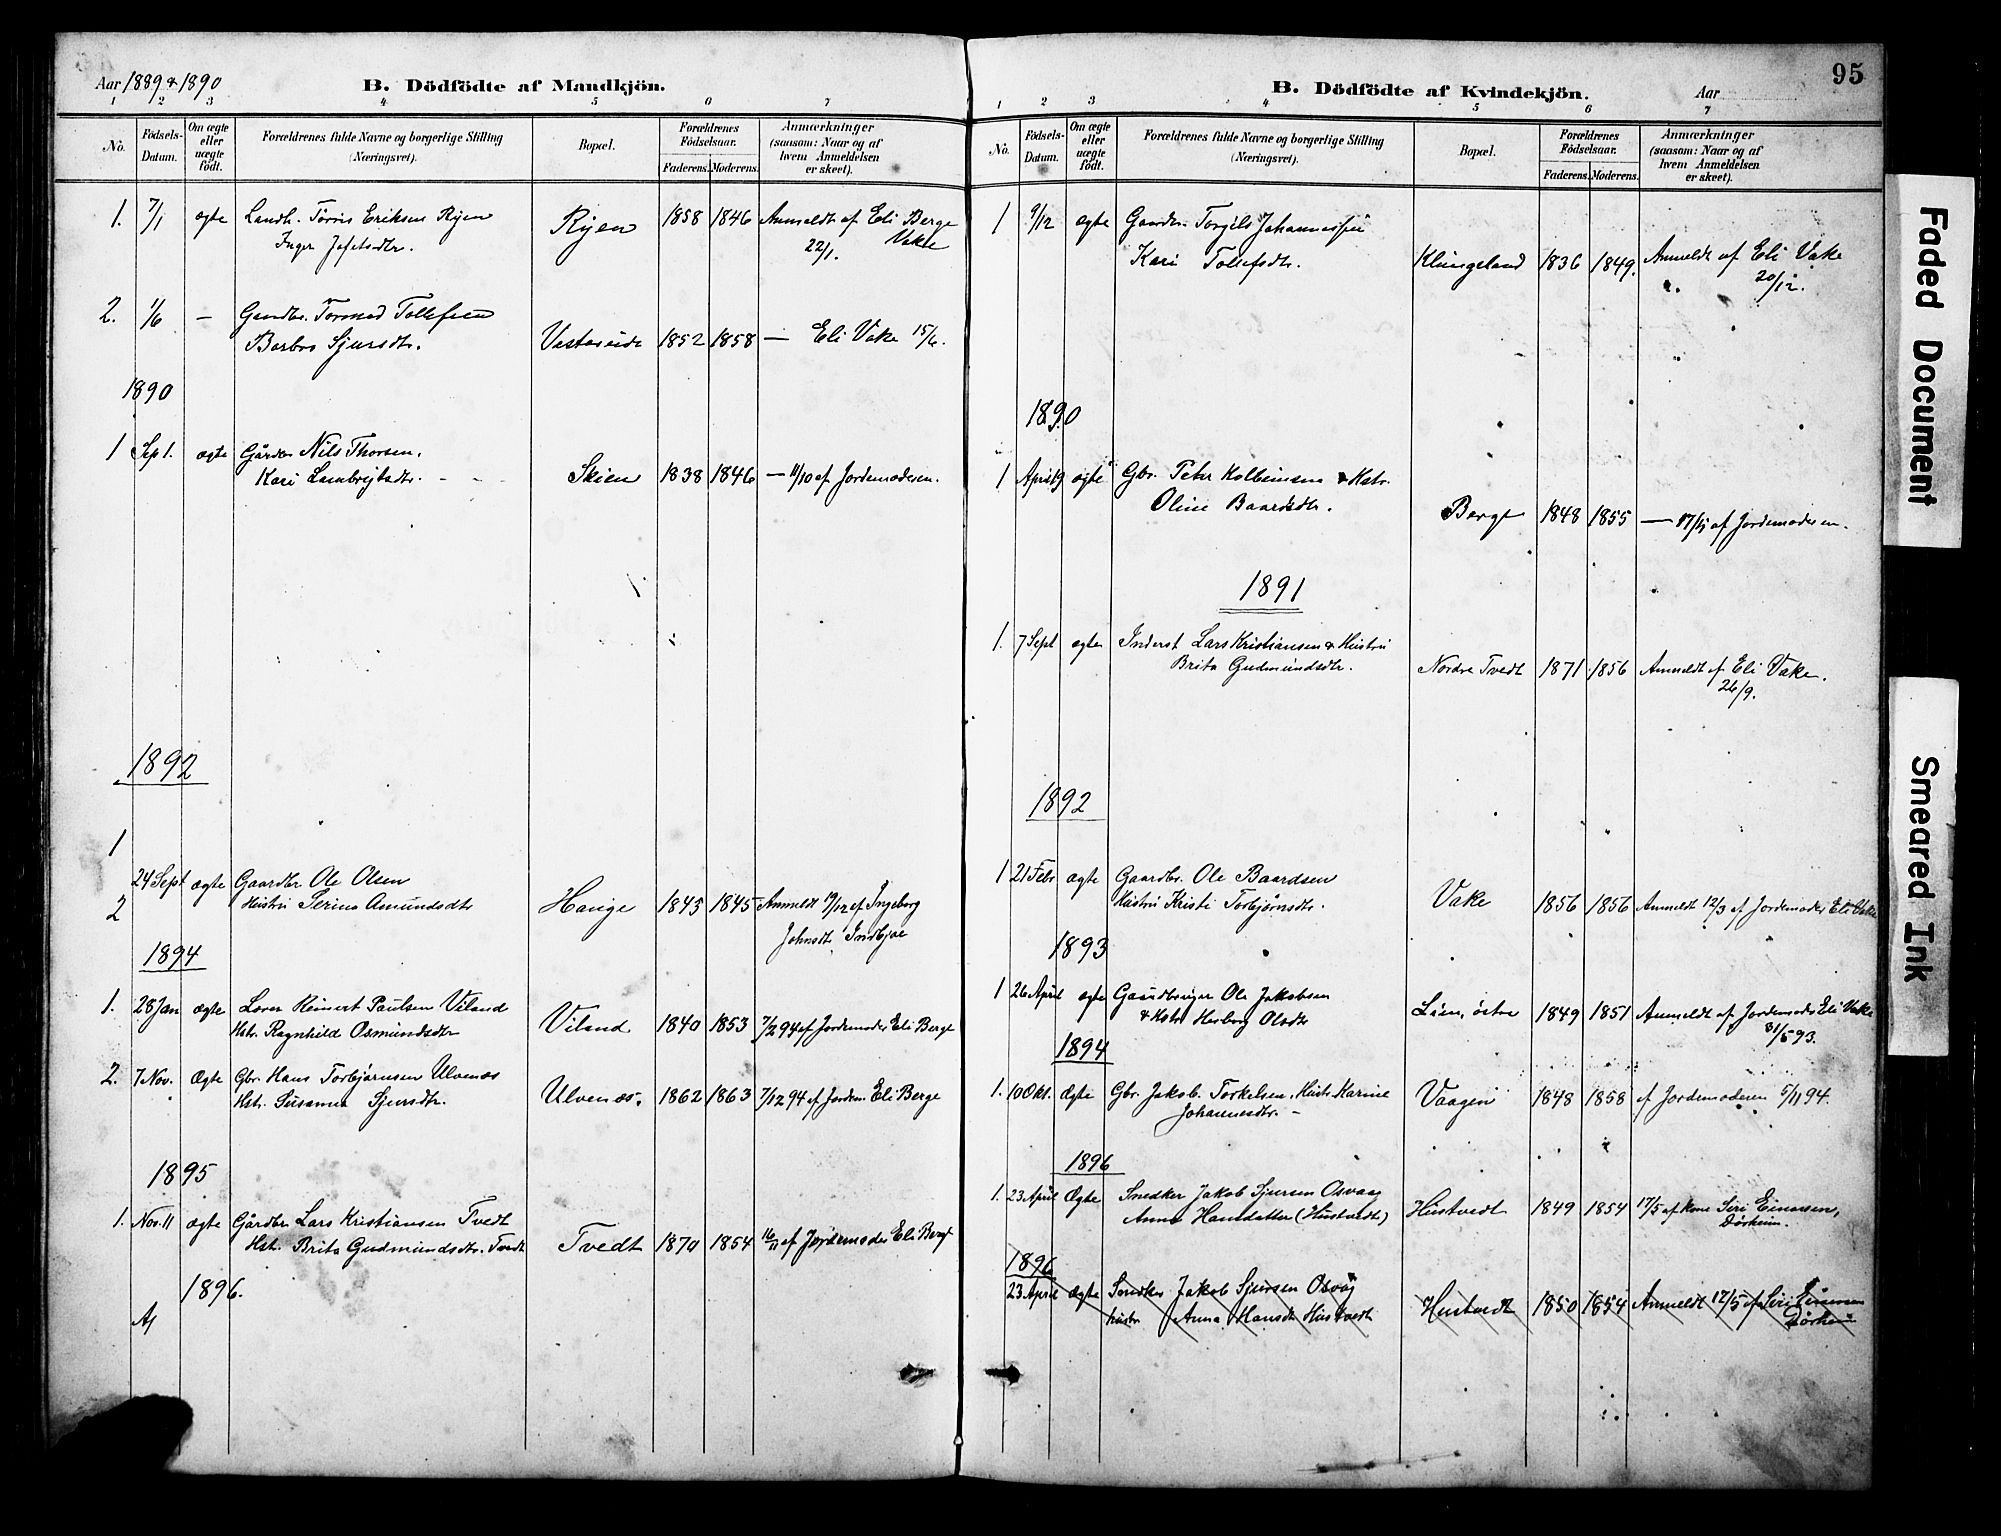 Aar 1889 & 1890
B. Dödfödte af Mandkjön.
1 2 3 4 5 6 7
No.
Födsels-Datum.
Om ægte eller uægte födt.
Forældrenes fulde Navne og borgerlige Stilling (Næringsvei).
Bopæl.
Forældrenes Födselsaar.
Faderens. Moderens.
Anmærkninger (saasom: Naar og af hvem Anmeldelsen er skeet).
1. 7/1 ægte Landh. Tørris Eriksen Rijen Rijen 1858 1846 Anmeldt af Eli Berge
Inger Jofetsdtr. 22/1. Vake
2. 1/6 — Gaardbr. Tormod Tollefsen
Barbro Sjursdtr. 1852 1858 — Eli Vake 15/6.
1890
1 Sep 1. ægte Gårdbr Nils Thorsen.
Kari Lambrejtsdtr. Skien 1838 1846 — 11/10 af Jordemoderen.
1892
1
24 Sept ægte Gaardbr Ole Olsen
2 Hustru Serina Amundsdtr Hauge 1843 1845 Anmeldt 19/12 af Ingeborg
Johnsdtr. Indbjoe
1894
1. 28 Jan ægte Reinert Paulsen Viland
Hst. Ragnhild Osmundsdtr Viland 1840 1853 7/2 94 af Jordemoder Eli Berge
2. 7 Nov. Ægte Gbr. Hans Torbjørnsen Ulvenæs
Hst. Susanna Sjursdtr. Ulvenæs. 1862 1863 7/12 94 af Jordem. Eli Berge
1895
1. Nov. 11 ægte Gårdbr Lars Kristiansen Tvedt
Hst. Brita Gudmundsdtr. Tvedt Tvedt 1870 1854 16/11 af Jordemoder Eli Berge
1896.
95
B. Dödfödte af Kvindekjön.
Aar
1 2 3 4 5 6 7
No.
Födsels-Datum.
Om ægte eller uægte födt.
Forældrenes fulde Navne og borgerlige Stilling (Næringsvei).
Bopæl.
Forældrenes Födselsaar.
Faderens. Moderens.
Anmærkninger (saasom: Naar og af hvem Anmeldelsen er skeet).
1 9/12 ægte Gaardbr. Torgils Johannesen
Kari Tollefsdtr. Klungeland 1836 1849. Anmeldt af Eli Vake
20/12.
1890
1 April 19 ægte Gbr. Peter Kolbeinsen & Hstr.
Oline Baardsdtr. Berge 1848 1855 — 17/5 af Jordemoderen.
1891
1. 7 Sept ægte Inderst Lars Kristiansen & Hustru
Brita Gudmundsdtr. Nordre Tvedt 1871 1856 Anmeldt af Eli Vake.
26/9.
1892
1 21 Febr ægte Gaardbr. Ole Baardsen
Hustru Kristi Torbjørnsdtr. Vake 1856 1856 Anmeldt 12/3 af Jordemoder Eli Vake
1893
1 26 April ægte Gaardbruger Ole Jakobsen
& Hstr Herborg Olsdtr Lien, østre 1849 1851 Anmeldt af Jordemoder Eli Vake
31/5 93.
1894
1. 10 Okt. Ægte Gbr. Jakob Torkelsen, Hust. Karine
Johannesdtr. – Vaagen 1848 1858 af Jordemoderen 5/11 94.
1896
1. 23 April Ægte Snedker Jakob Sjursen Osvaag
Anna Hansdatter (Hustvedt) Hustvedt 1849 1854 17/5 af Kone Siri Einarsen,
Dørheim.
1896
23 April Ægte Snedker Jakob Sjursen Osvåg
hustr Anna Hansdtr Hustvedt Hustvedt 1850 1854 Anmeldt 17/5 af Siri Einarsen
Dørheim
Faded Document
Smeared Ink